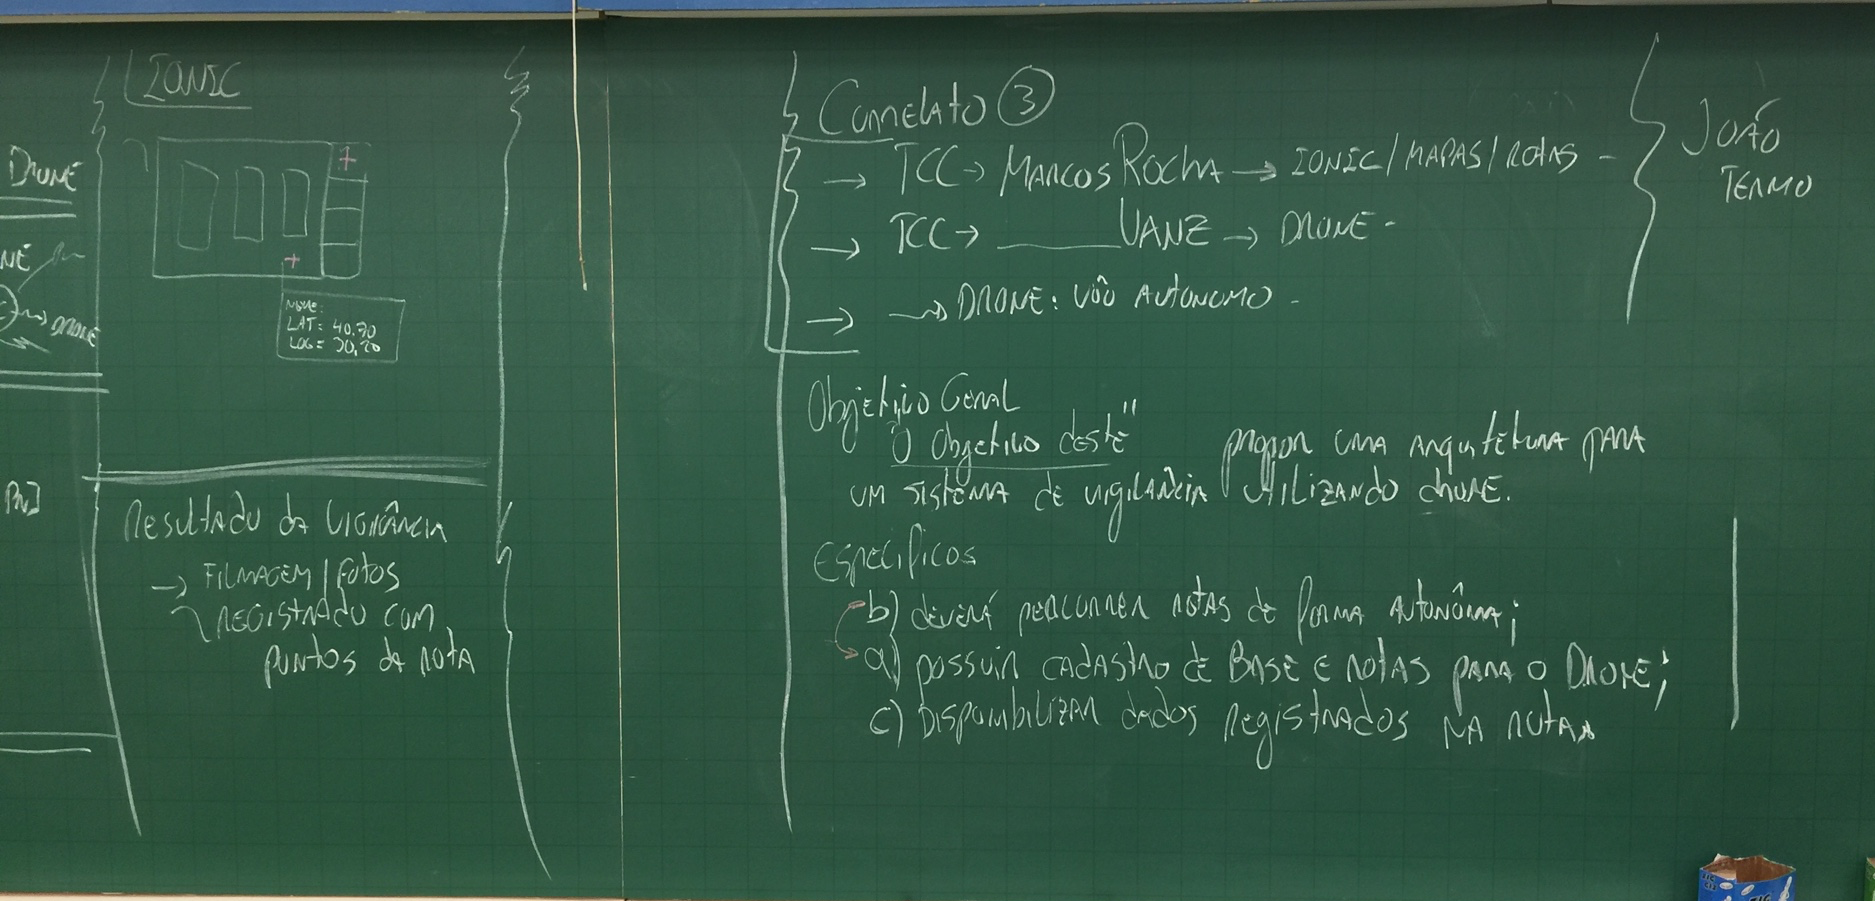 DRONE
NE
DRONE
IONIC
NOME:
LAT= 40.30
LOG= 30,20
Resultado da Vigilância
→ FILMAGEM / FOTOS
REGISTRADO COM
PONTOS DA ROTA
Correlato ③
→ TCC → MARCOS ROCHA → IONIC / MAPAS / ROTAS -
→ TCC → ______ VANZ → DRONE -
→ → DRONE: VÔO AUTONOMO -
Objetivo Geral
"O Objetivo deste" propor uma arquitetura para
um sistema de vigilância utilizando drone.
Específicos
b) deverá percorrer rotas de forma autonôma;
a) possuir cadastro de Base e rotas para o Drone;
c) Disponibilizar dados registrados na rota.
JOÃO
TERMO